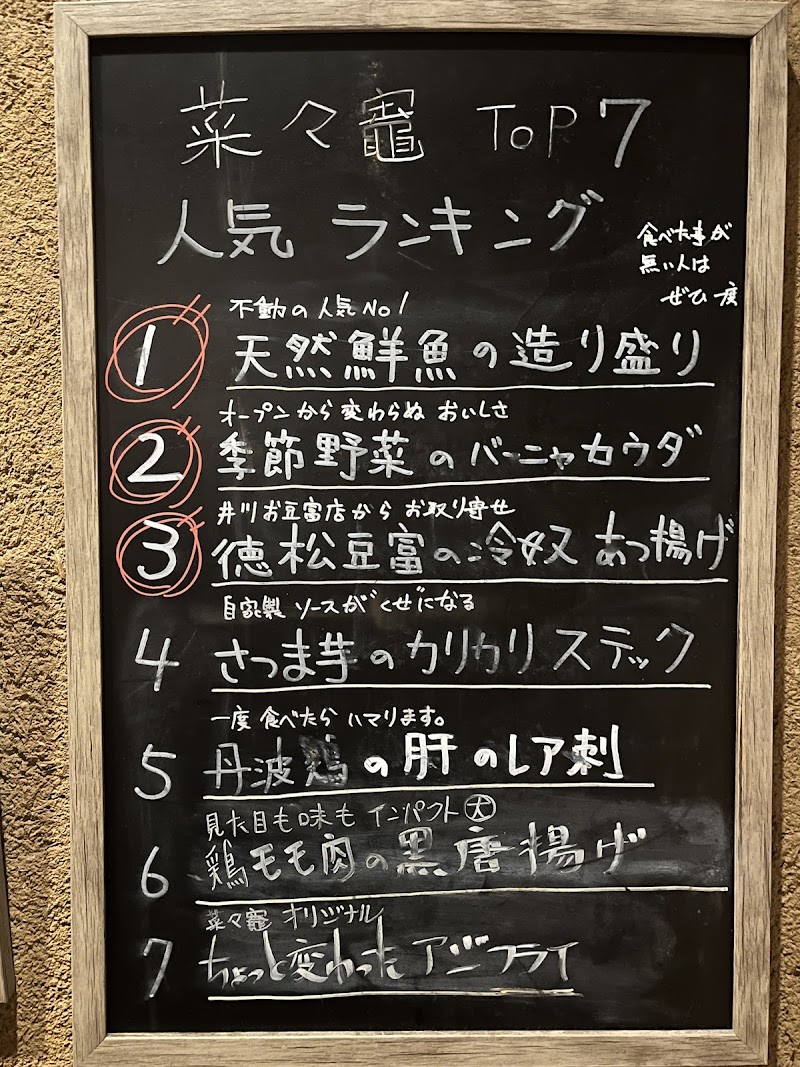 菜々竈 TOP7
人気 ランキング
食べた事が
無い人は
ぜひ一度
不動の人気No1
1 天然鮮魚の造り盛り
オープンから変わらぬ おいしさ
2 季節野菜のバーニャカウダ
井川お豆富店から お取り寄せ
3 徳松豆富の冷奴 あつ揚げ
自家製 ソースがくせになる
4 さつま芋のカリカリスティック
一度食べたら ハマります。
5 丹波鶏の肝のレア刺
見た目も味も インパクト大
6 鶏モモ肉の黒唐揚げ
菜々竈 オリジナル
7 ちょっと変わった アジフライ